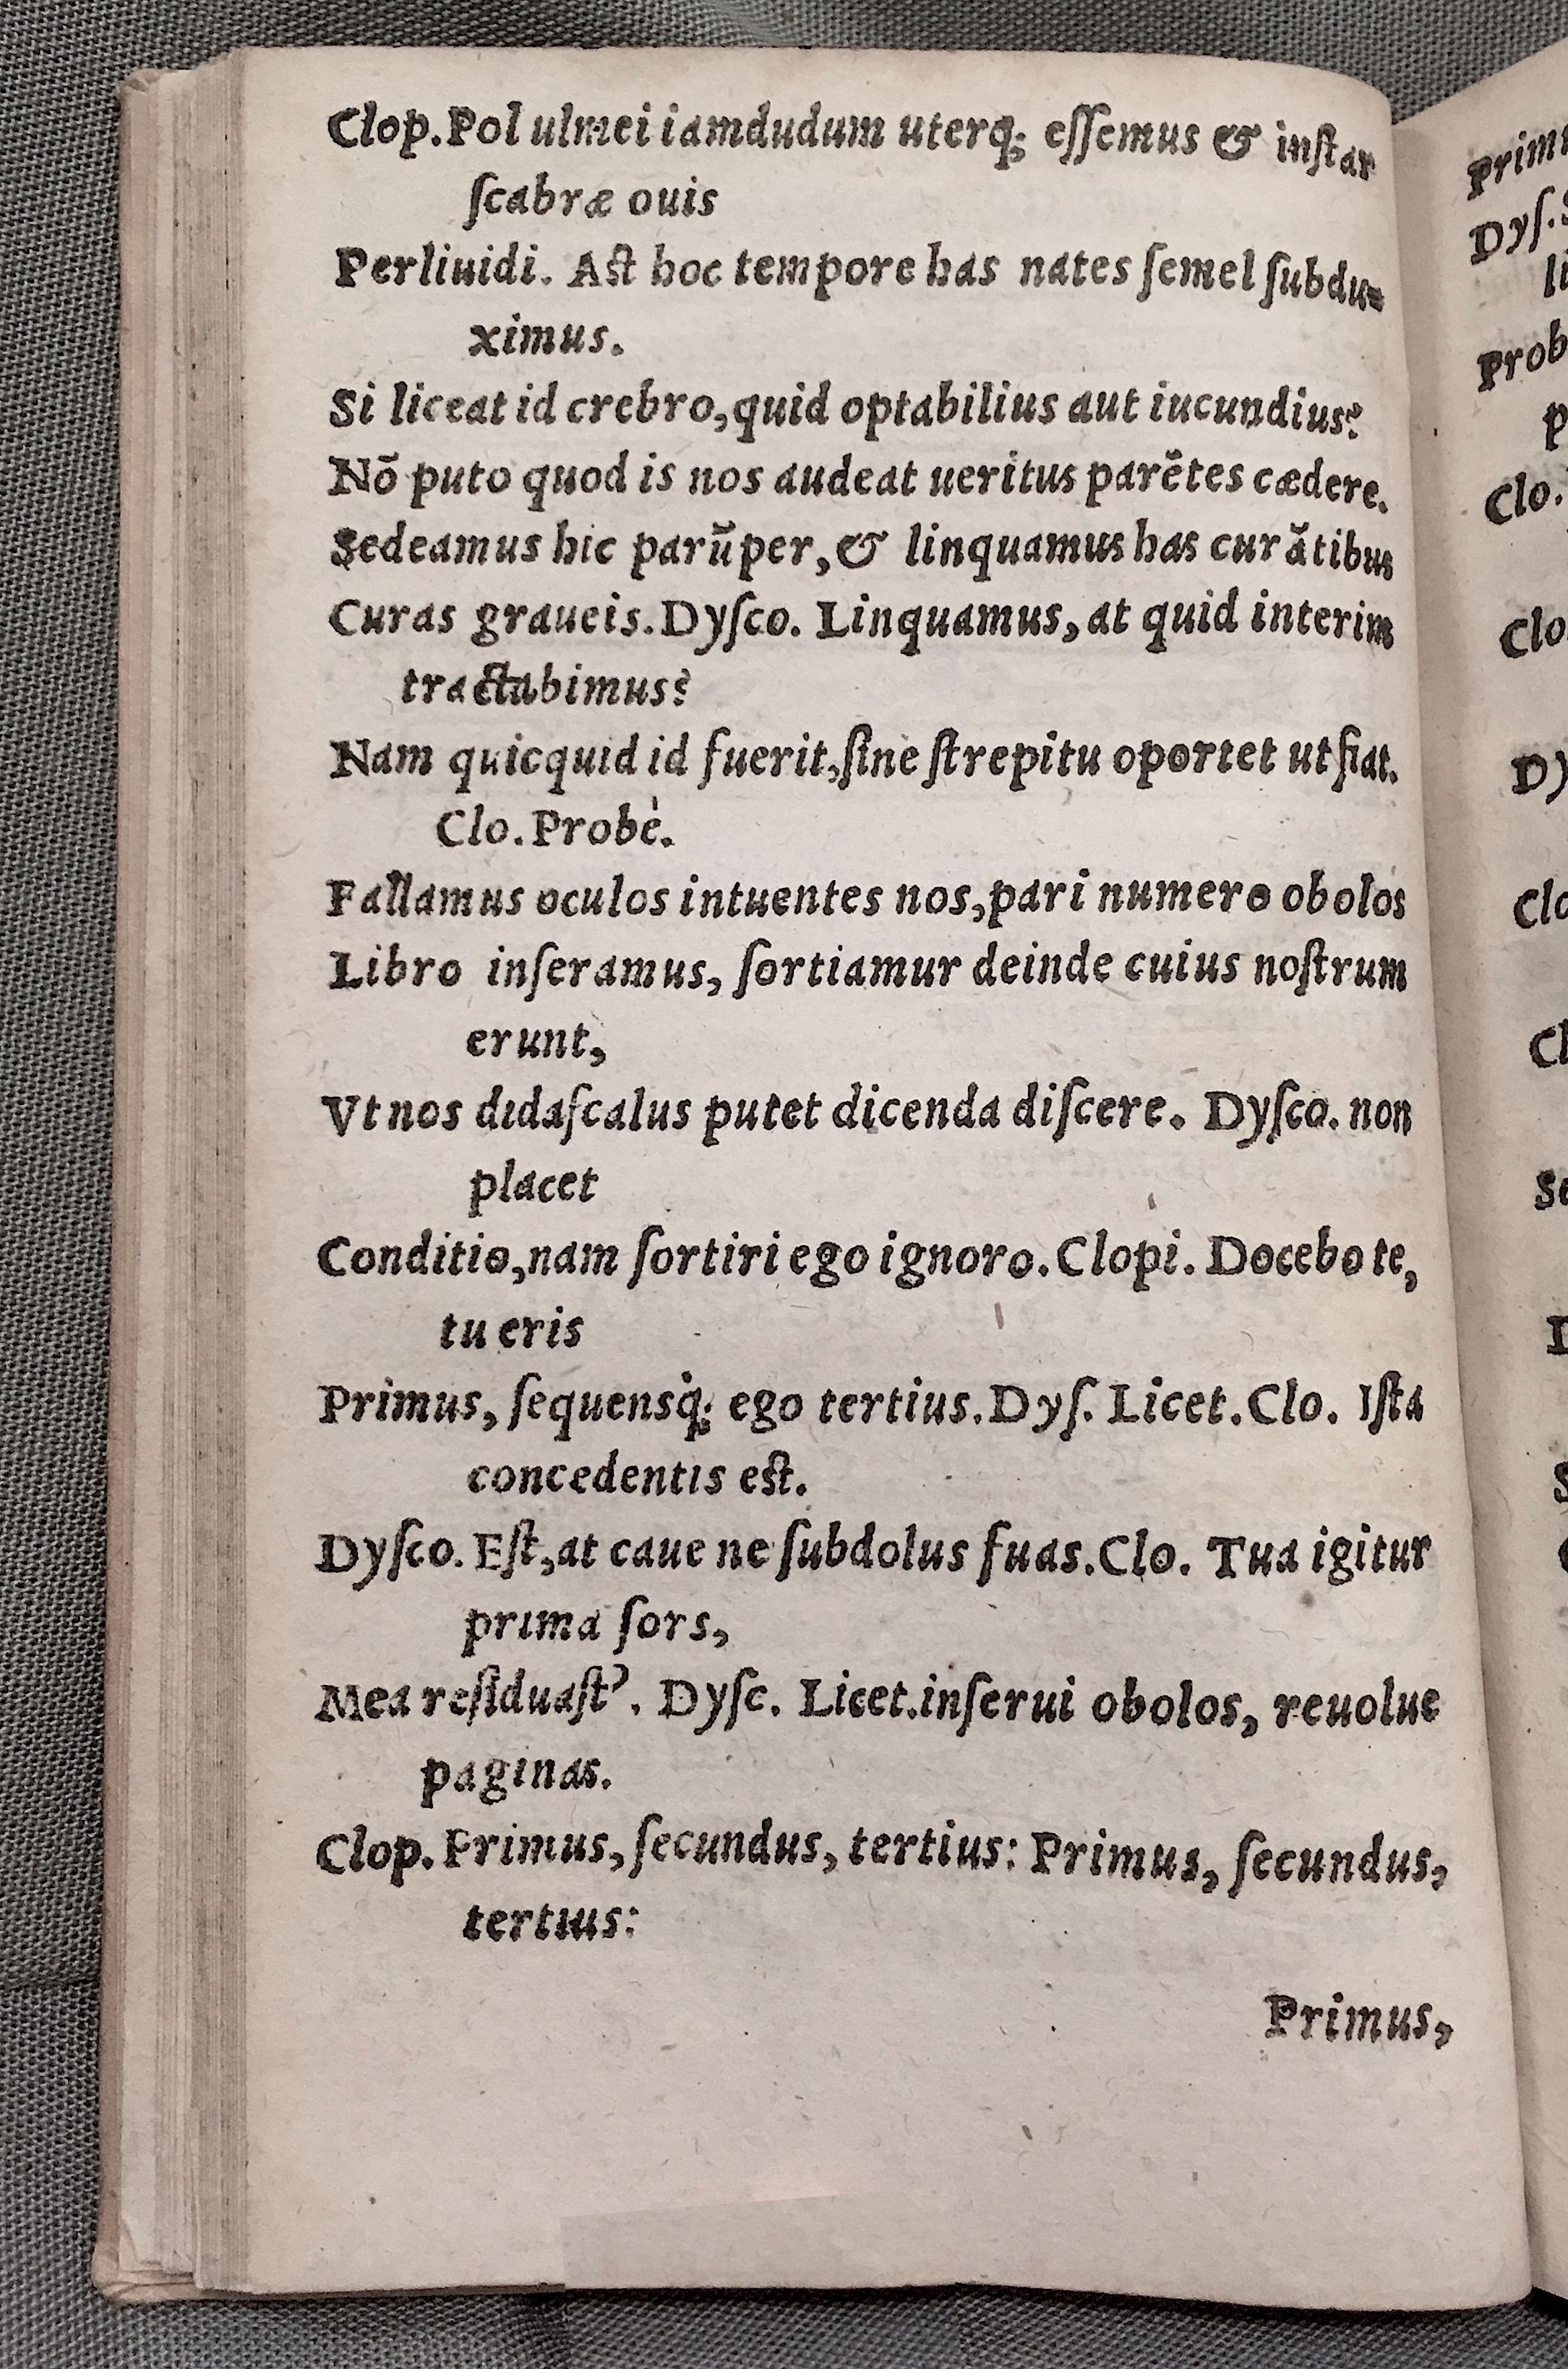 Clop. Pol ulmei iamdudum uterq; eſſemus & inſtar
ſcabræ ouis
Perliuidi. Aſt hoc tempore has nates ſemel ſubdu=
ximus.
Si liceat id crebro, quid optabilius aut iucundius?
Nō puto quod is nos audeat ueritus parētes cædere.
Sedeamus hic parūper, & linquamus has curātibus
Curas graueis. Dyſco. Linquamus, at quid interim
tractabimus?
Nam quicquid id fuerit, ſine ſtrepitu oportet ut fiat.
Clo. Probè.
Fallamus oculos intuentes nos, pari numero obolos
Libro inſeramus, ſortiamur deinde cuius noſtrum
erunt,
Vt nos didaſcalus putet dicenda diſcere. Dyſco. non
placet
Conditio, nam ſortiri ego ignoro. Clopi. Docebo te,
tu eris
Primus, ſequensq́; ego tertius. Dyſ. Licet. Clo. Iſta
concedentis eſt.
Dyſco. Eſt, at caue ne ſubdolus fuas. Clo. Tua igitur
prima ſors,
Mea reſiduaſt'. Dyſc. Licet. inſerui obolos, reuolue
paginas.
Clop. Primus, ſecundus, tertius: Primus, ſecundus,
tertius:
Primus,
Dyſ.
Clo.